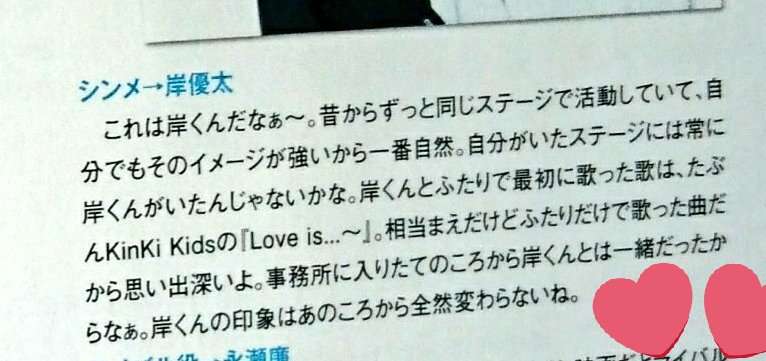 シンメ→岸優太
これは岸くんだなぁ〜。昔からずっと同じステージで活動していて、自
分でもそのイメージが強いから一番自然。自分がいたステージには常に
岸くんがいたんじゃないかな。岸くんとふたりで最初に歌った歌は、たぶ
んKinKi Kidsの『Love is...〜』。相当まえだけどふたりだけで歌った曲だ
から思い出深いよ。事務所に入りたてのころから岸くんとは一緒だったか
らなぁ。岸くんの印象はあのころから全然変わらないね。
役→永瀬廉